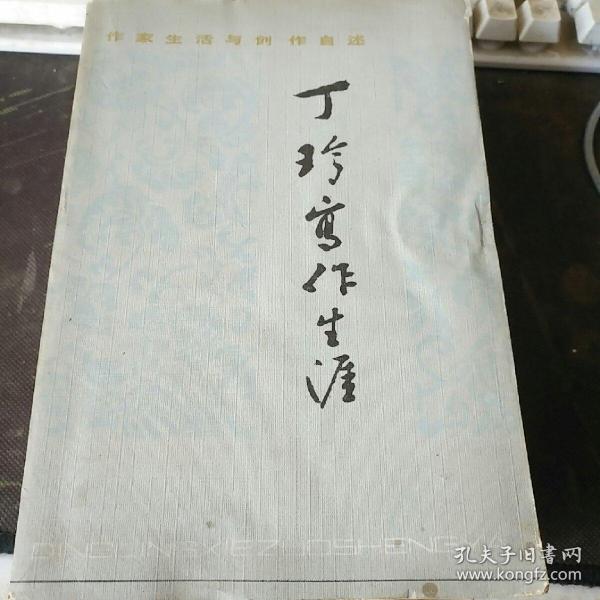 作家生活与创作自述
丁玲寫作生涯
DINGLINGXIEZUOSHENGYA
孔夫子旧书网
www.kongfz.com